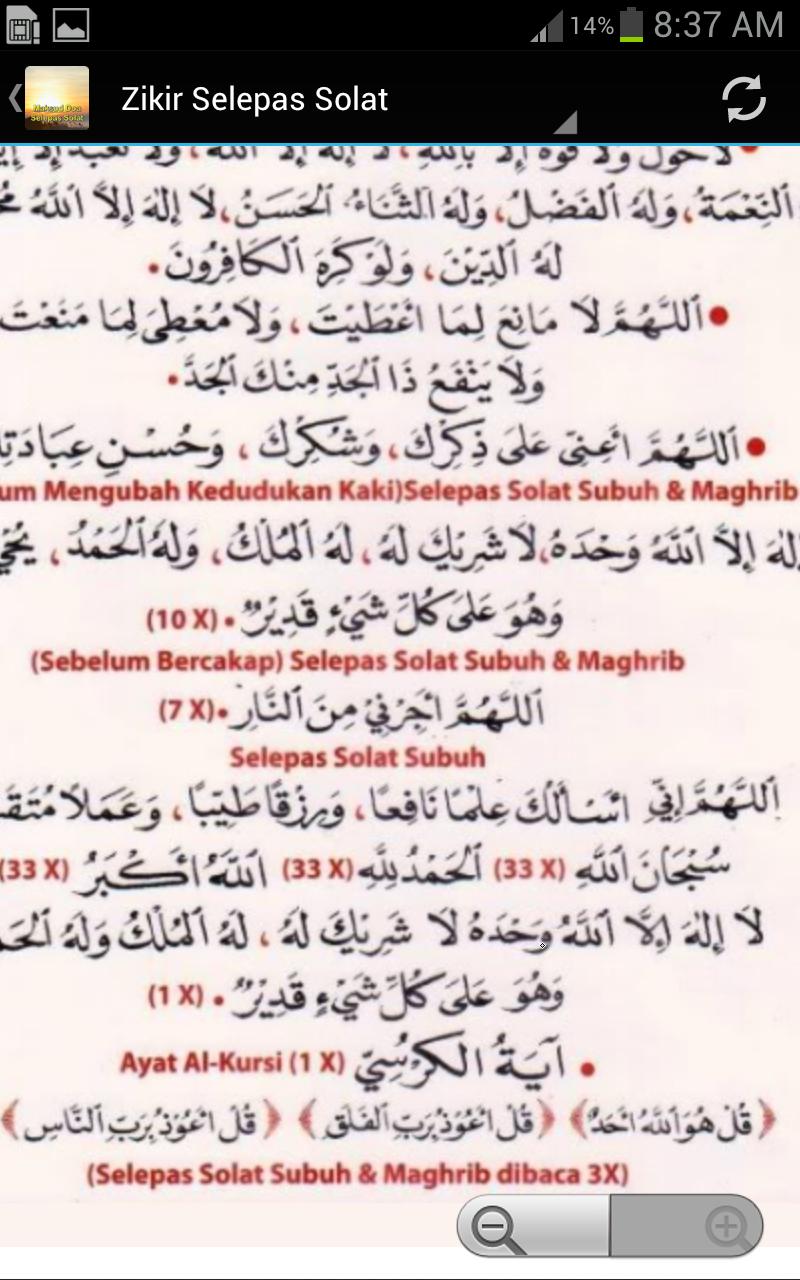 14% 8:37 AM
Zikir Selepas Solat
Maksud Doa
Selepas Solat
النِّعْمَةُ، وَلَهُ الْفَضْلُ، وَلَهُ الثَّنَاءُ الْحَسَنُ، لَا إِلٰهَ إِلَّا اللَّهُ
لَهُ الدِّيْنَ، وَلَوْ كَرِهَ الْكَافِرُونَ.
• اَللَّهُمَّ لَا مَانِعَ لِمَا أَعْطَيْتَ، وَلَا مُعْطِيَ لِمَا مَنَعْتَ
وَلَا يَنْفَعُ ذَا الْجَدِّ مِنْكَ الْجَدُّ.
• اَللَّهُمَّ أَعِنِّي عَلَى ذِكْرِكَ، وَشُكْرِكَ، وَحُسْنِ
um Mengubah Kedudukan Kaki)Selepas Solat Subuh & Maghrib
إِلَّا اللَّهُ وَحْدَهُ، لَا شَرِيْكَ لَهُ، لَهُ الْمُلْكُ، وَلَهُ الْحَمْدُ،
وَهُوَ عَلَى كُلِّ شَيْءٍ قَدِيْرٌ. (10 X)
(Sebelum Bercakap) Selepas Solat Subuh & Maghrib
اَللَّهُمَّ أَجِرْنِيْ مِنَ النَّارِ. (7 X)
Selepas Solat Subuh
اَللَّهُمَّ إِنِّي أَسْأَلُكَ عِلْمًا نَافِعًا، وَرِزْقًا طَيِّبًا، وَعَمَلًا
سُبْحَانَ اللَّهِ (33 X) الْحَمْدُ لِلَّهِ (33 X) اللَّهُ أَكْبَرُ (33 X)
لَا إِلٰهَ إِلَّا اللَّهُ وَحْدَهُ لَا شَرِيْكَ لَهُ، لَهُ الْمُلْكُ وَلَهُ
وَهُوَ عَلَى كُلِّ شَيْءٍ قَدِيْرٌ. (1 X)
• آيَةُ الْكُرْسِيّ Ayat Al-Kursi (1 X)
﴿قُلْ هُوَ اللَّهُ أَحَدٌ﴾ ﴿قُلْ أَعُوْذُ بِرَبِّ الْفَلَقِ﴾ ﴿قُلْ أَعُوْذُ بِرَبِّ النَّاسِ﴾
(Selepas Solat Subuh & Maghrib dibaca 3X)